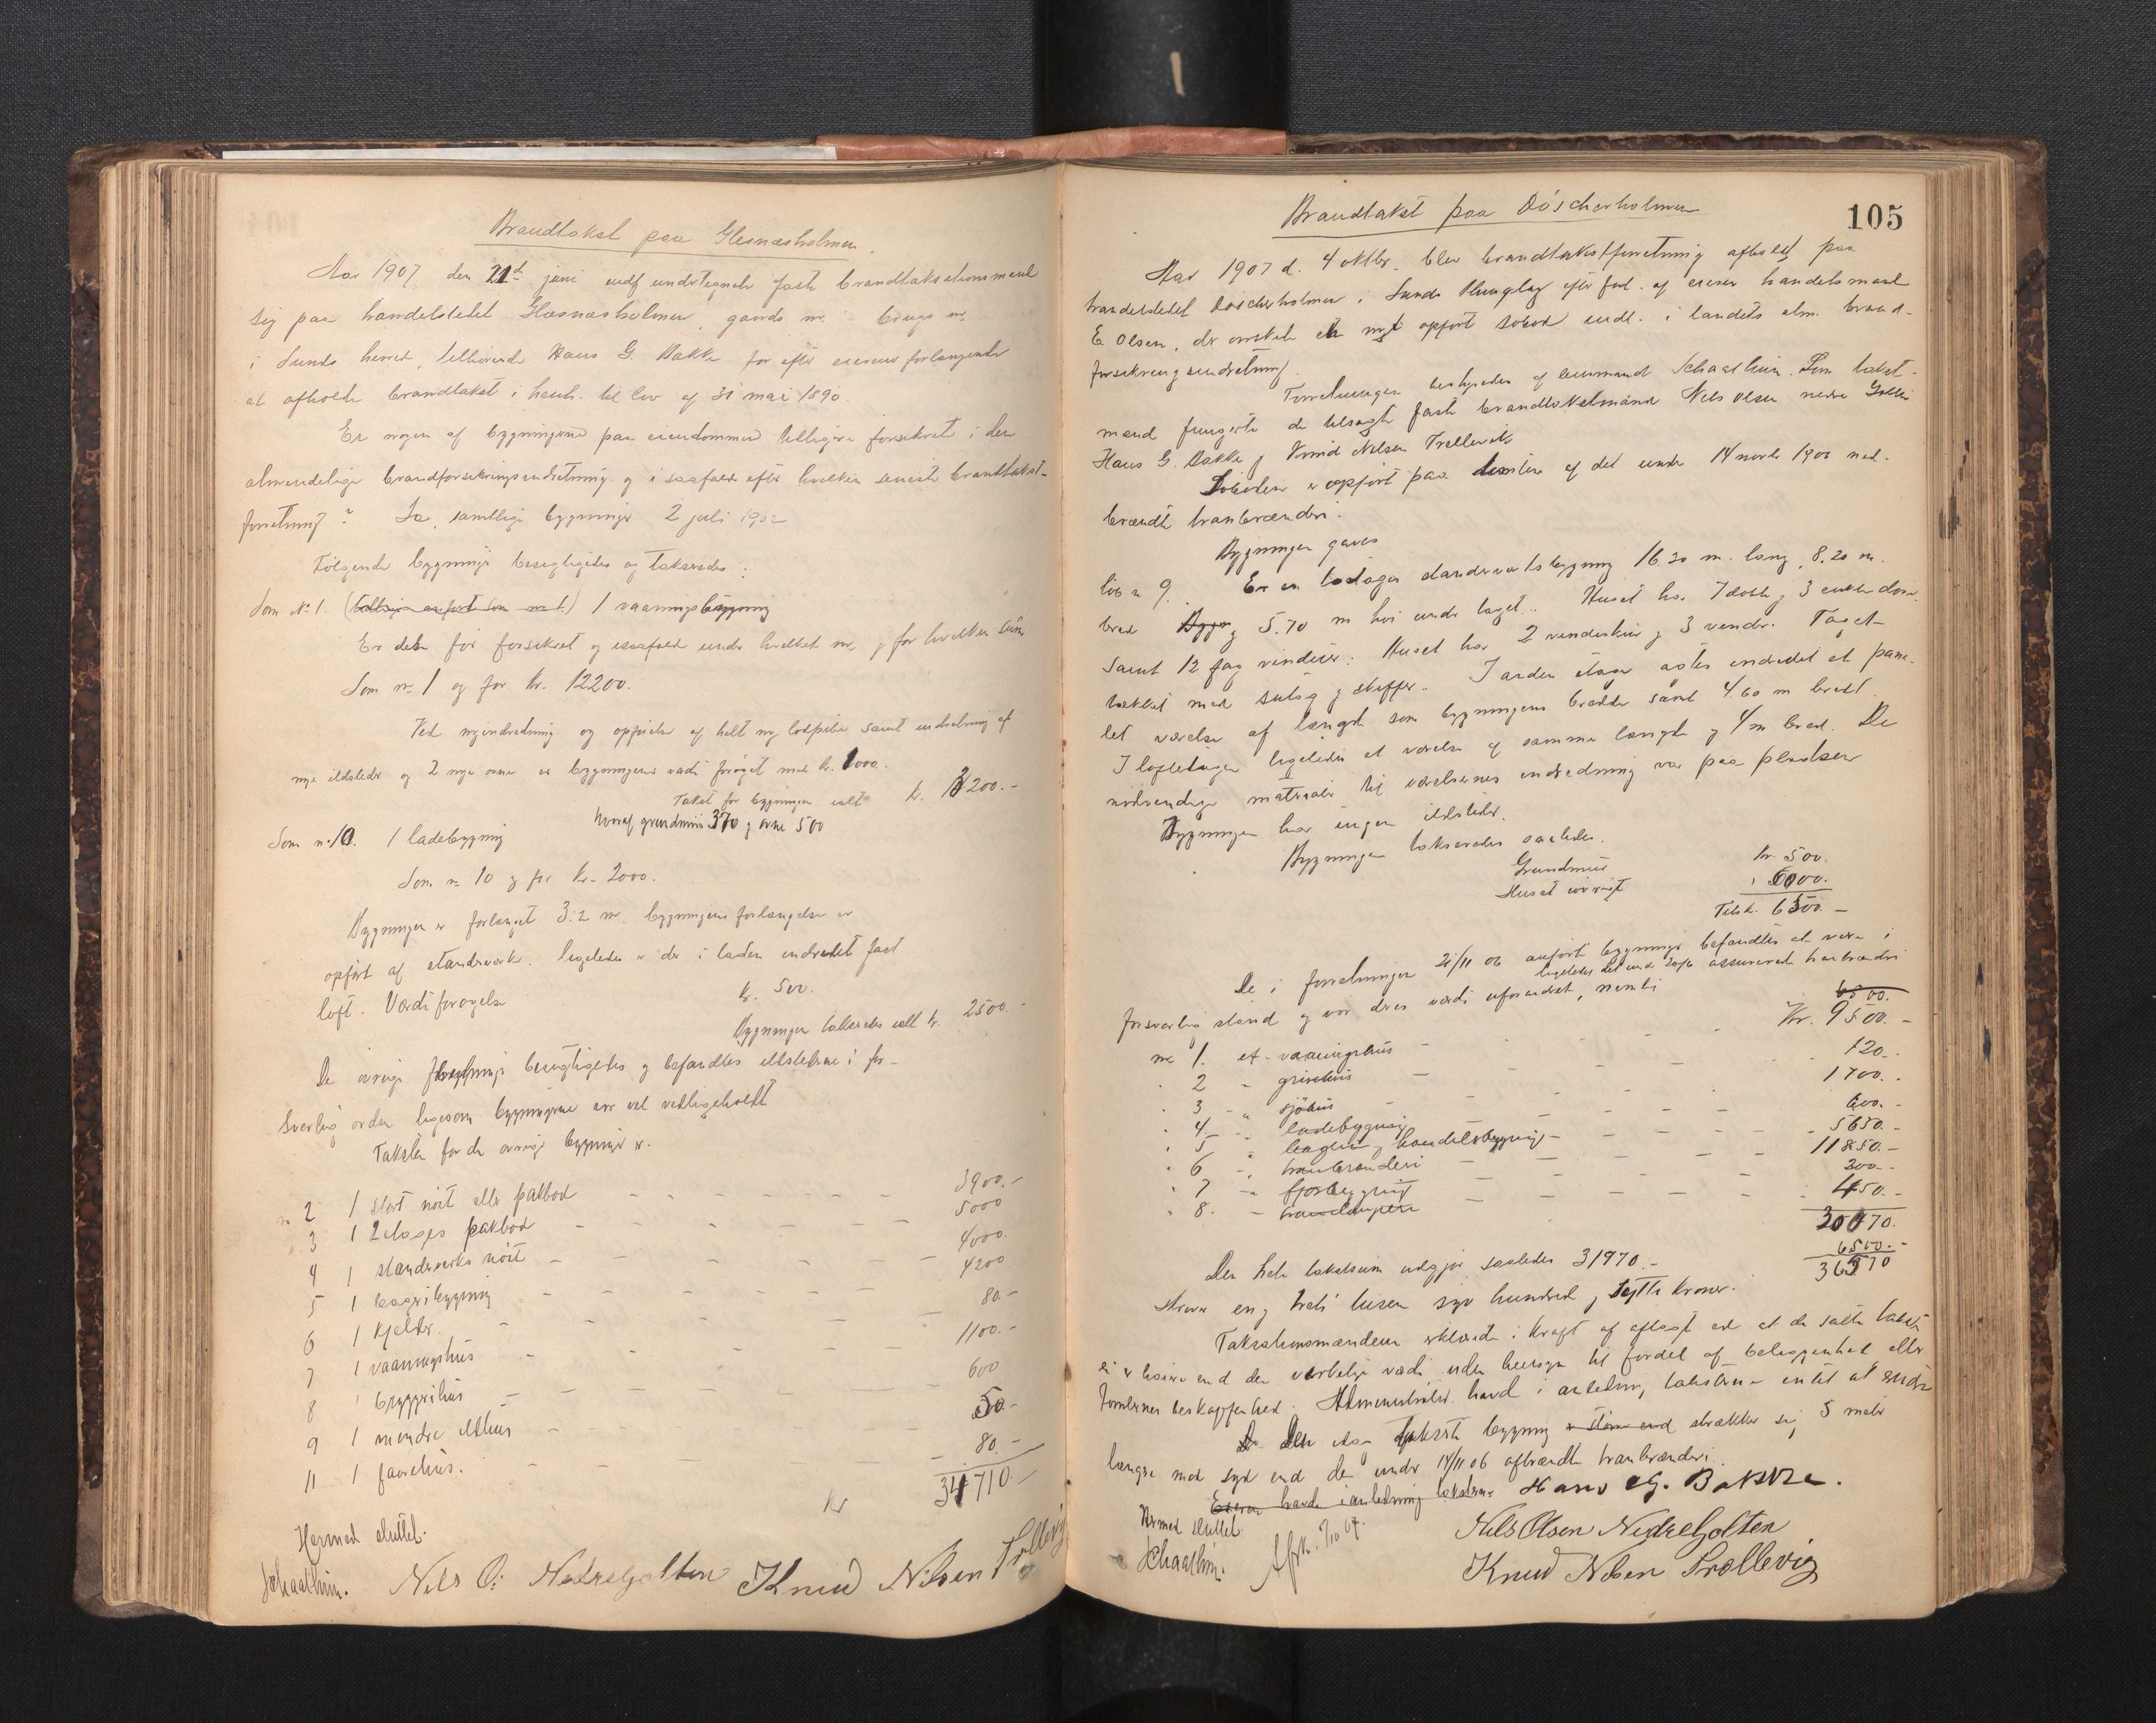 Brandtakst paa Glesnæsholmen.
Aar 1907 den 21de juni indf undertegnede faste brandtaksationsmænd
sig paa handelstedet Glæsnæsholmen, gaards nr. brugs nr.
i Sunds herred, tilhørende Hans G. Bakke for efter eierens forlangende
at afholde brandtakst i henh. til lov af 31 mai 1890.
Er nogen af bygningerne paa eiendommen tilligere forsikret i den
almindelige brandforsikringsindretning og i saafald efter hvilken seneste brandtakst-
forretning? Ja, samtlige bygninger 2 juli 1902
Følgende bygninger besigtigedes og taksertes:
Som No 1. 1 vaaningsbygning
Er den før forsikret og isaafald under hvilket nr. og for hvilken sum
Som nr 1 og for Kr. 12200.
Ved nyindredning og opførelse af helt ny lodpibe samt indretning af
nye ildsteder og 2 nye ovne er bygningens værdi forøget med kr. 1000.
Takst for bygningen ialt kr. 13200.-
hvoraf grundmur 370 og ovne 500
Som nr. 10. 1 ladebygning
Som nr 10 og for kr. 2000.
Bygningen er forlænget 3.2 m. bygningens forlængelse er
opført af standværk. Ligeledes er der i laden indredet fast
loft. Værdiforøgelse kr. 500.
Bygningen takseredes ialt kr. 2500.-
De øvrige bygninger besigtigedes og befandtes ildstederne i for-
svarlig orden ligesom bygningerne var vel vedligeholdt
Taksten for de øvrige bygninger er.
nr 2 1 stort nøst eller pakbod - - - 3900.-
3 1 2etages pakbod - - - 5000
4 1 standværks nøst - - - 4000.
5 1 bageribygning - - - 4200
6 1 kjelder. - - - 80.-
7 1 vaaningshus - - - 1100.-
8 1 bryggerihus - - - 600
9 1 mindre ildhus - - - 50.-
11 1 faarehus. - - - 80.-
Kr 34710.-
Hermed sluttet.
Schaathun. Nils O: Nedregolten Knud Nilsen Trellevig
105
Brandtakst paa Døscherholmen
Aar 1907 d. 4 oktbr. blev brandtakstforretning afholdt paa
handelstedet Døscherholmen i Sunds thinglag efter forl. af eieren handelsmand
E Olsen, der ønskede en nyt opført søbod indt. i landets alm. brand-
forsikringsindretning.
Forretningen bestyredes af lensmand Schaathun. Som takst-
mænd fungerte de tilsagte faste brandtakstmænd Nils Olsen nedre Golten
Hans G. Bakke og Knud Nilsen Trellevik
Søboden er opført paa tomten af det under 14 novbr 1906 ned-
brændte tranbrænderi.
Bygningen gaves
lib nr 9. Er en toetages standerværksbygning 16.20 m. lang, 8.20 m.
bred og 5.70 m høi under taget. Huset har 7 doble og 3 enkle døre
samt 12 fag vinduer. Huset har 2 vindeskur og 3 vinder. Taget
tækket med sutag og skiffer. I anden etage agtes indredet et pane-
let værelse af længde som bygningens bredde samt 4.60 m bredt.
I loftetagen ligeledes et værelse af samme længde og 4 m bred. De
nødvendige materialer til værelsernes indredning var paa pladsen
Bygningen har ingen ildsteder.
Bygningen takseredes saaledes.
Grundmur Kr. 500.
Huset iøvrigt " 6000.
Tilsk. 6500.-
De i forretningen 21/11 06 anførte bygninger befandtes at være i
ligeledes det und 20/12 assurerede tranbrænderi
forsvarlig stand og var deres værdi uforandret, nemlig
6500.
nr 1. et vaaningshus - - - Kr. 9500.-
" 2 " grisehus - - - 120.-
" 3 - " sjøhus - - - 1700.-
" 4 - " ladebygning - - - 600.-
" 5 " lager og handelsbygning - - - 5650.-
" 6 - " tranbrænderi - - - 11850.-
" 7 - " fjøsbygning - - - 300.-
" 8. - trandamperi - - - 450.-
30170.
6500.-
36570
Den hele takstsum udgjør saaledes 31970.-
skriver en og treti tusen syv hundred og sytti kroner.
Taksationsmændene erklærede i kraft af aflagt ed at de satte takster
ei er høiere end den virkelige værdi uden hensyn til fordel af beliggenhed eller
tomternes beskaffenhed. Administrator havde i anledning taksten intet at erindre
Den idag takserte bygning strækker sig 5 meter
længre mod syd end det under 14/11 06 afbrændte tranbrænderi.
Eieren havde i anledning taksten Hans G. Bakke.
Hermed sluttet Nils Olsen Nedregolten
Schaathun. Afsk. 7/10 07. Knud Nilsen Trællevig